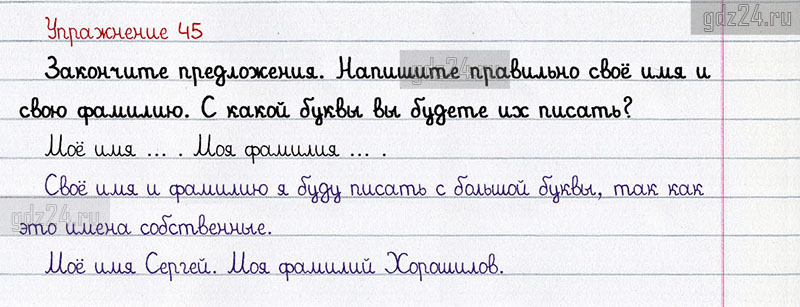 gdz24.ru
Упражнение 45
Закончите предложения. Напишите правильно своё имя и
gdz24.ru
свою фамилию. С какой буквы вы будете их писать?
Моё имя ... . Моя фамилия ... .
Своё имя и фамилию я буду писать с большой буквы, так как
gdz24.ru
это имена собственные.
Моё имя Сергей. Моя фамилий Хорошилов.